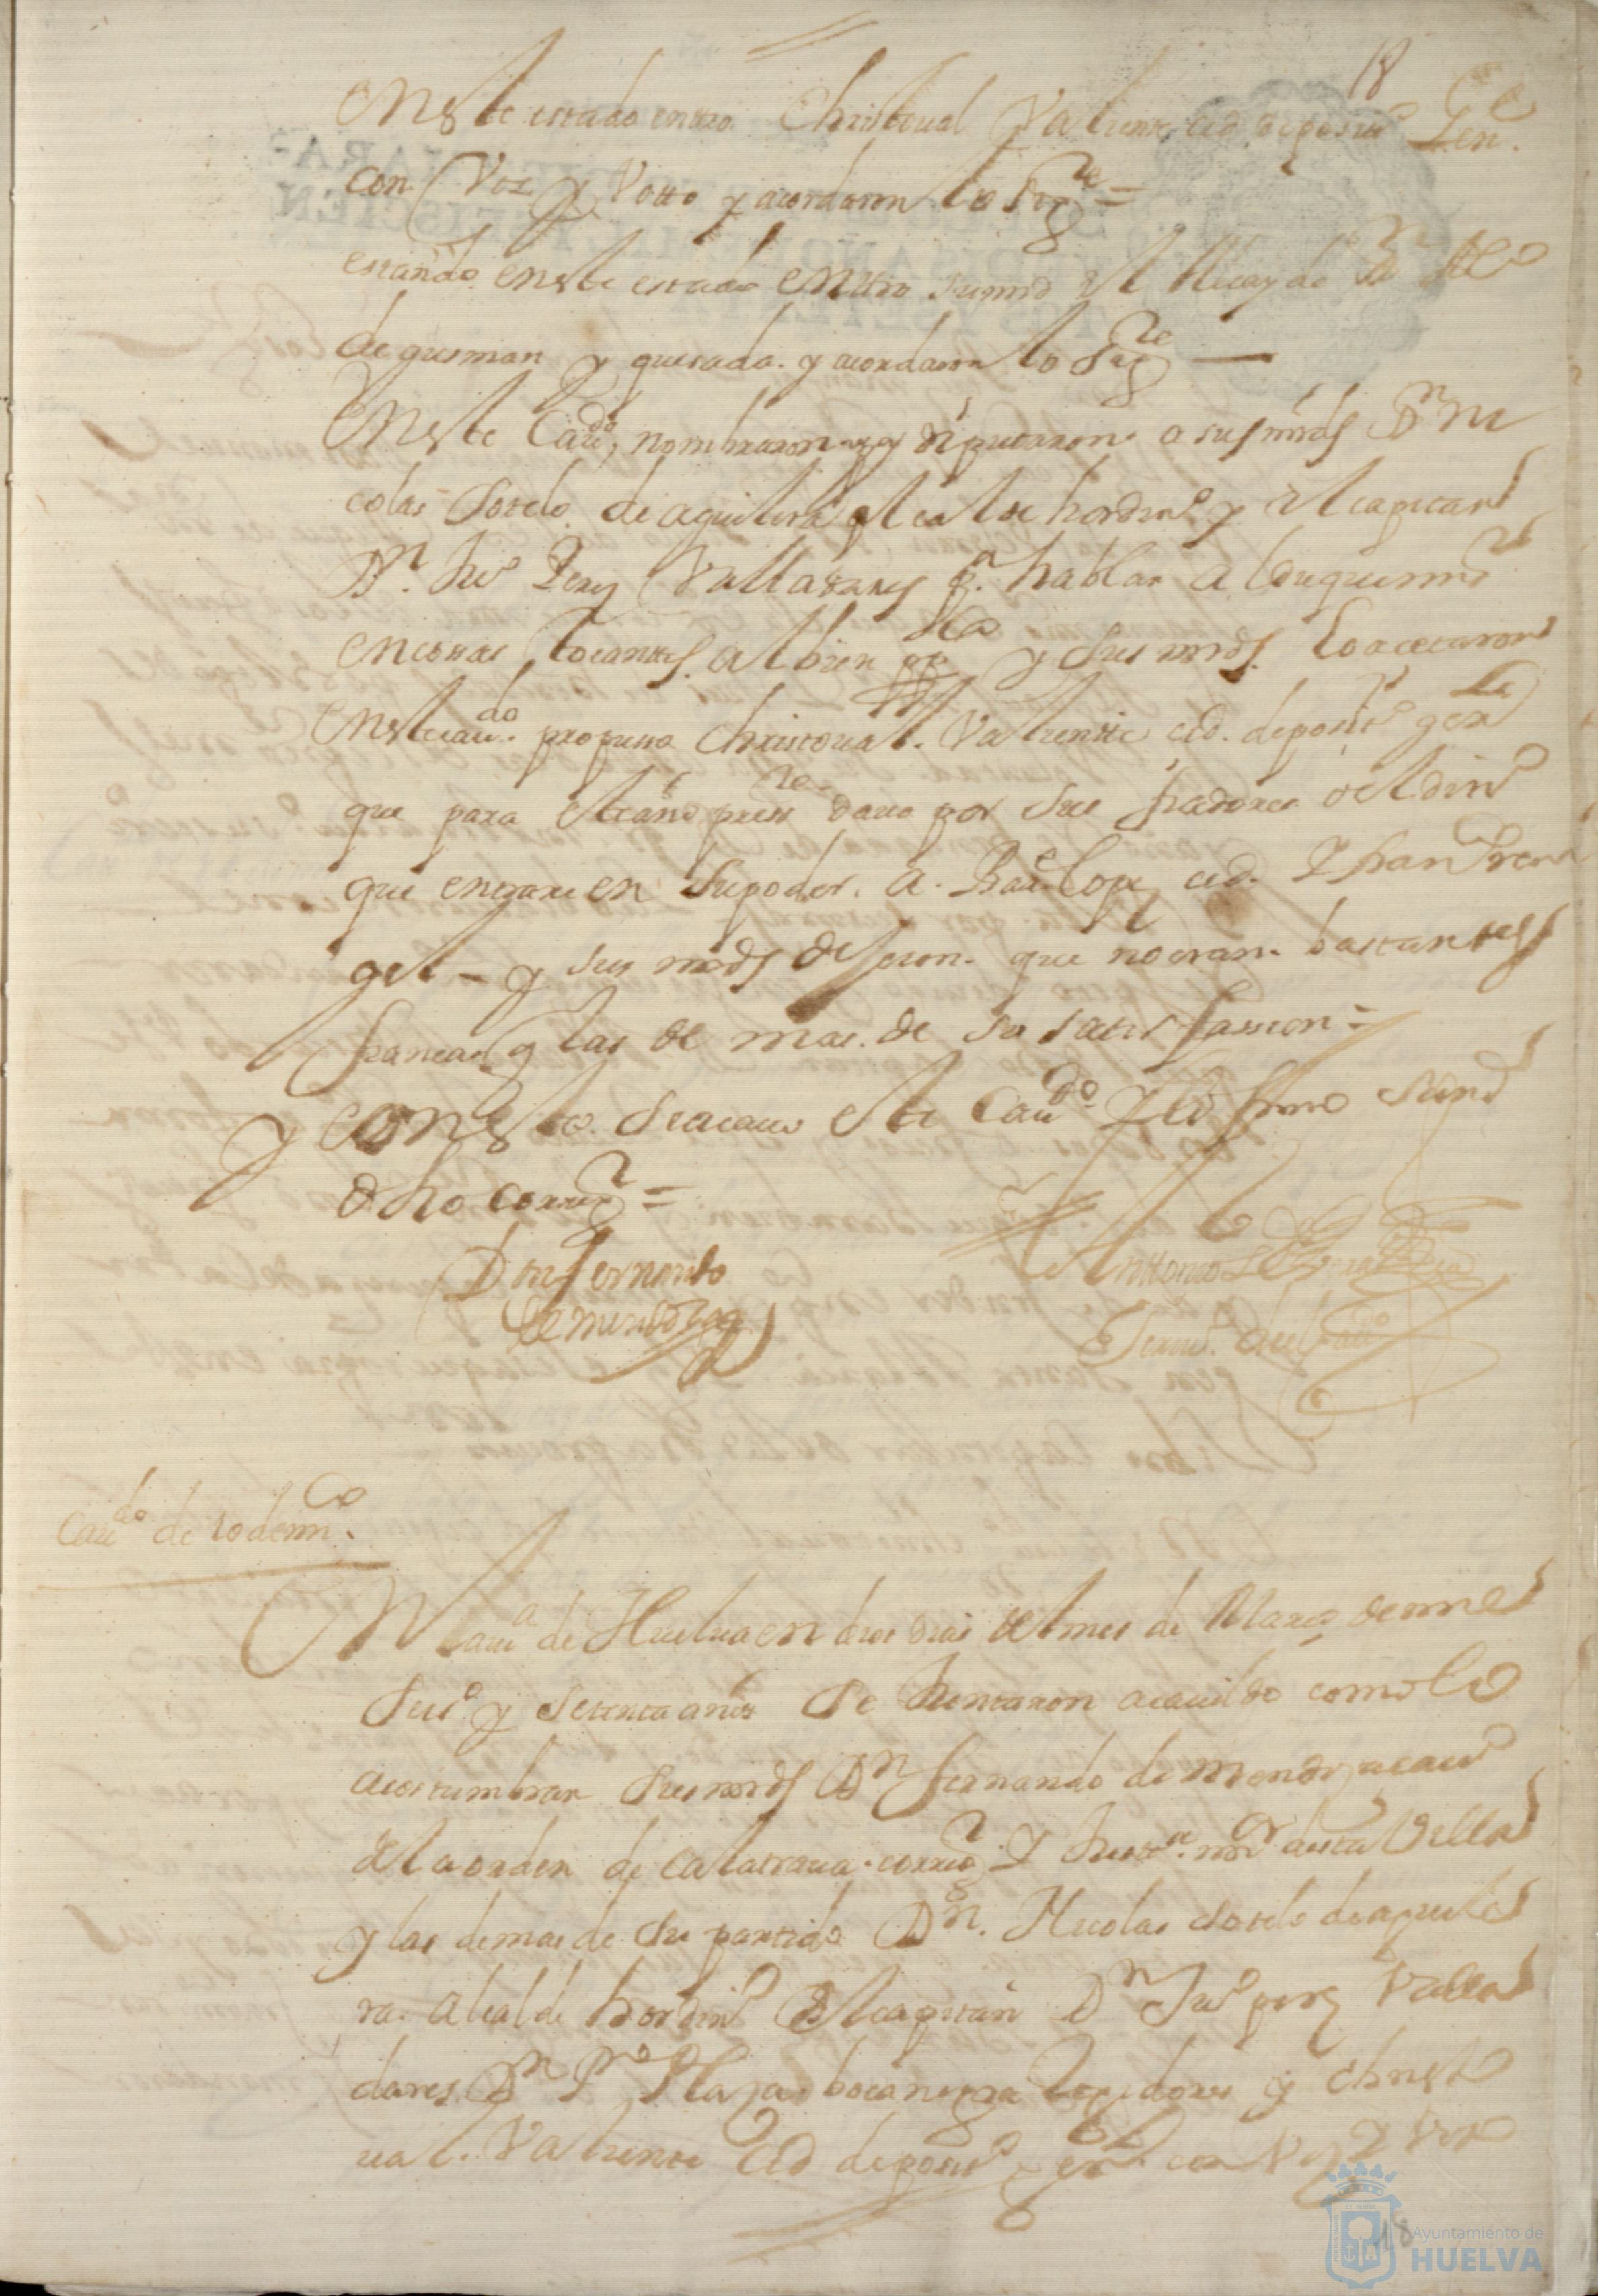 18
En este estado entro Christoual Valiente ced deposit.º Gen.
con Voz y Votto y acordaron lo sigte =
estando en este estado entro su md el Alcayde Dn
de gusman y quesada y acordaron lo sigte —
En este Caudo, nombraron y diputaron a sus mrds Dn Ni
colas Sotelo de aguilera alcalde hordin.º y el capitan
Dn. Juº Perez Valladares pa. hablar al duque mi sr
en cosas tocantes al bien y sus mrds lo acetaron
En este caudo. propusso Christoual Valiente ced. deposit.º genl
que para este año presste daua por sus fiadores del dinº
que entrare en su poder. a. Baue Lopez ced. y fran Ren
gel - y sus mrds dijeron. que no eran bastantes
fiancas y las de mas de su satisfassion =
y con esto se acauo este Caudo. y lo firmo su md
dho corregr =
Don fernando
de mendoza
Antonio
Scriuº. del Caudo
Caudo de 10 de mço.
En la uia de Huelua en dies dias del mes de Março de mil
seisº y setenta años se juntaron a cauildo como lo
acostumbran sus mrds Dn fernando de mendoza cauº
del a orden de calatraua corregr y Justa. mor desta Villa
y las demas de su partido Dn. Nicolas sotelo de aguile
ra. alcalde hordinº El capitan Dn Juº perez Valla
dares Dn Pº Plaza bocanegra Regidores y christo
ual. Valiente ced deposit.º genl. con Voz y Voto
18
Ayuntamiento de
HUELVA